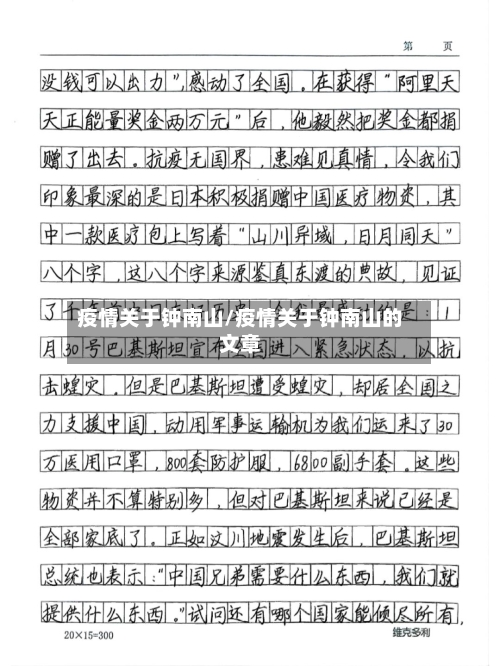 第 页
没钱可以出力”,感动了全国。在获得“阿里天
天正能量奖金两万元”后,他毅然把奖金都捐
赠了出去。抗疫无国界,患难见真情,令我们
印象最深的是日本积极捐赠中国医疗物资,其
中一款医疗包上写着“山川异域,日月同天”
八个字,这八个字来源鉴真东渡的典故,见证
了千年前
是:1
疫情关于钟南山/疫情关于钟南山的
文章
月30号巴基斯坦宣布全国进入紧急状态,以抗
击蝗灾。但是巴基斯坦遭受蝗灾,却居全国之
力支援中国,动用军事运输机为我们运来了30
万医用口罩,800套防护服,6800副手套。这些
物资并不算特别多,但对巴基斯坦来说已经是
全部家底了。正如汶川地震发生后,巴基斯坦
总统也表示:“中国兄弟需要什么东西,我们就
提供什么东西。”试问还有哪个国家能倾尽所有,
20×15=300 维克多利